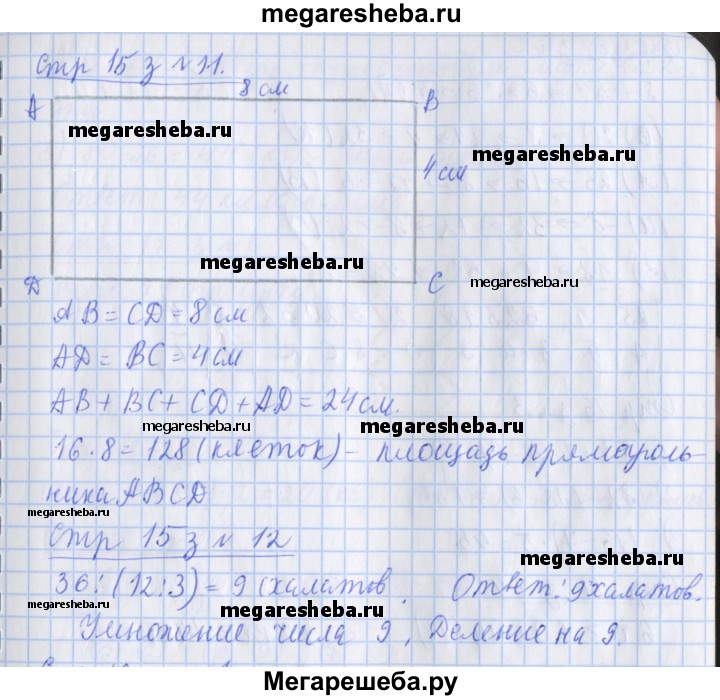 megaresheba.ru
Стр 15 з № 11.
8 см
А
В
megaresheba.ru
megaresheba.ru
4 см
megaresheba.ru
Д
С
megaresheba.ru
АВ = СД = 8 см
АД = ВС = 4 см
АВ + ВС + СД + АД = 24 см.
megaresheba.ru
megaresheba.ru
16 · 8 = 128 (клеток) - площадь прямоуголь-
ника АВСД
megaresheba.ru
Стр 15 з № 12
megaresheba.ru
36 : (12 : 3) = 9 (халатов Ответ: 9 халатов.
megaresheba.ru
megaresheba.ru
Умножение числа 9, Деление на 9.
Мегарешеба.ру